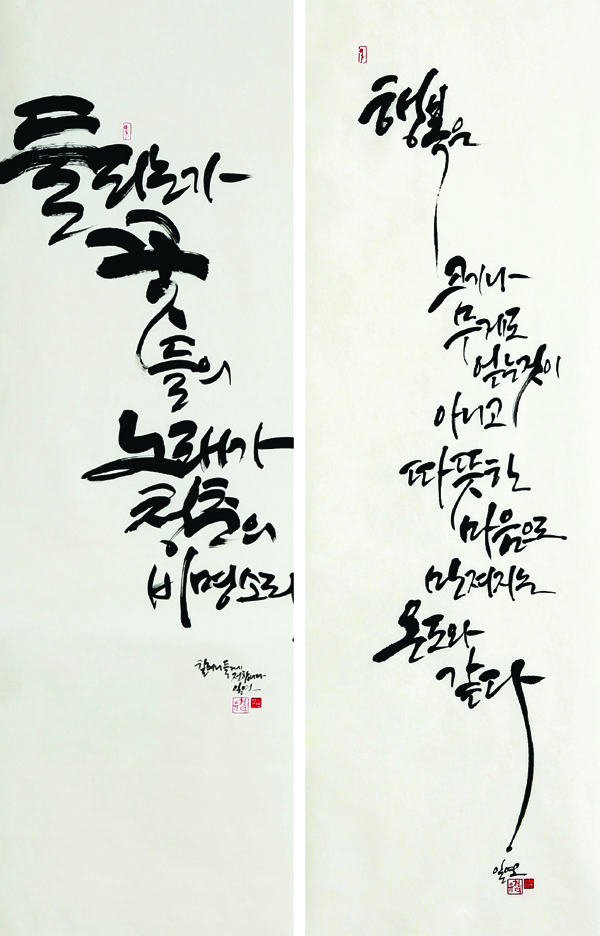 들리는가
꽃
들의
노래가
청춘의
비명소리
할머니들께
전합니다
행복은
크기나
무게로
얻는것이
아니고
따뜻한
마음으로
만져지는
온도와
같다